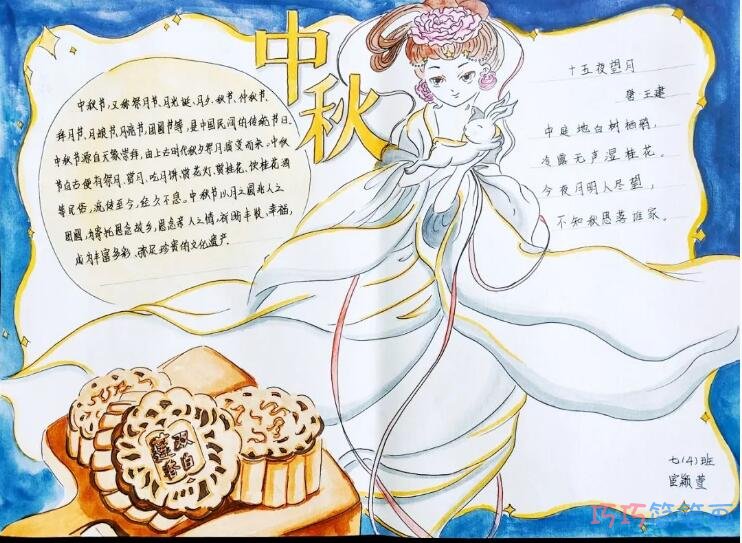 中秋
中秋节，又称祭月节、月光诞、月夕、秋节、仲秋节、
拜月节、月娘节、月亮节、团圆节等，是中国民间的传统节日。
中秋节源自天象崇拜，由上古时代秋夕祭月演变而来。中秋
节自古便有祭月、赏月、吃月饼、赏花灯、赏桂花、饮桂花酒
等民俗，流传至今，经久不息。中秋节以月之圆兆人之
团圆，为寄托思念故乡，思念亲人之情，祈盼丰收、幸福，
成为丰富多彩、弥足珍贵的文化遗产。
十五夜望月
唐 王建
中庭地白树栖鸦，
冷露无声湿桂花。
今夜月明人尽望，
不知秋思落谁家。
双白
莲蓉
七(4)班
巧巧简笔画